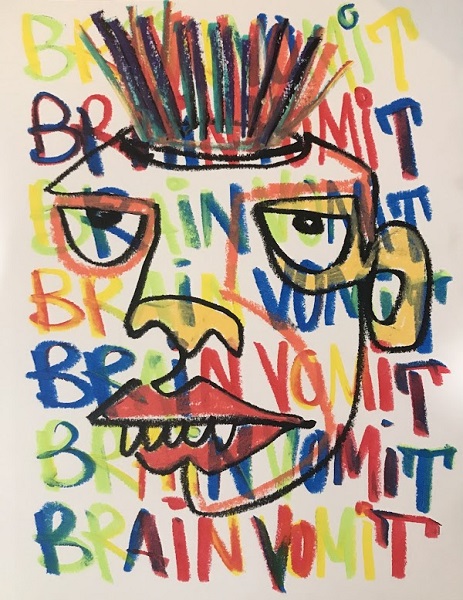 BRAiN VOMiT
BRAiN VOMiT
BRAiN VOMiT
BRAiN VOMiT
BRAiN VOMiT
BRAiN VOMiT
BRAiN VOMiT